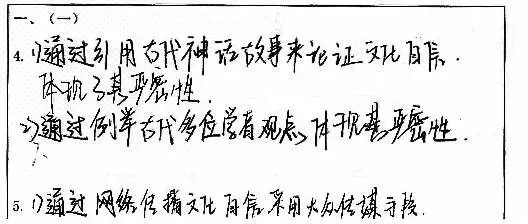 一、（一）
4. 1)通过引用古代神话故事来论证文化自信.
体现了其严密性.
2)通过例举古代多位学者观点,体现其严密性.
5. 1)通过网络传播文化自信采用大众传媒手段.